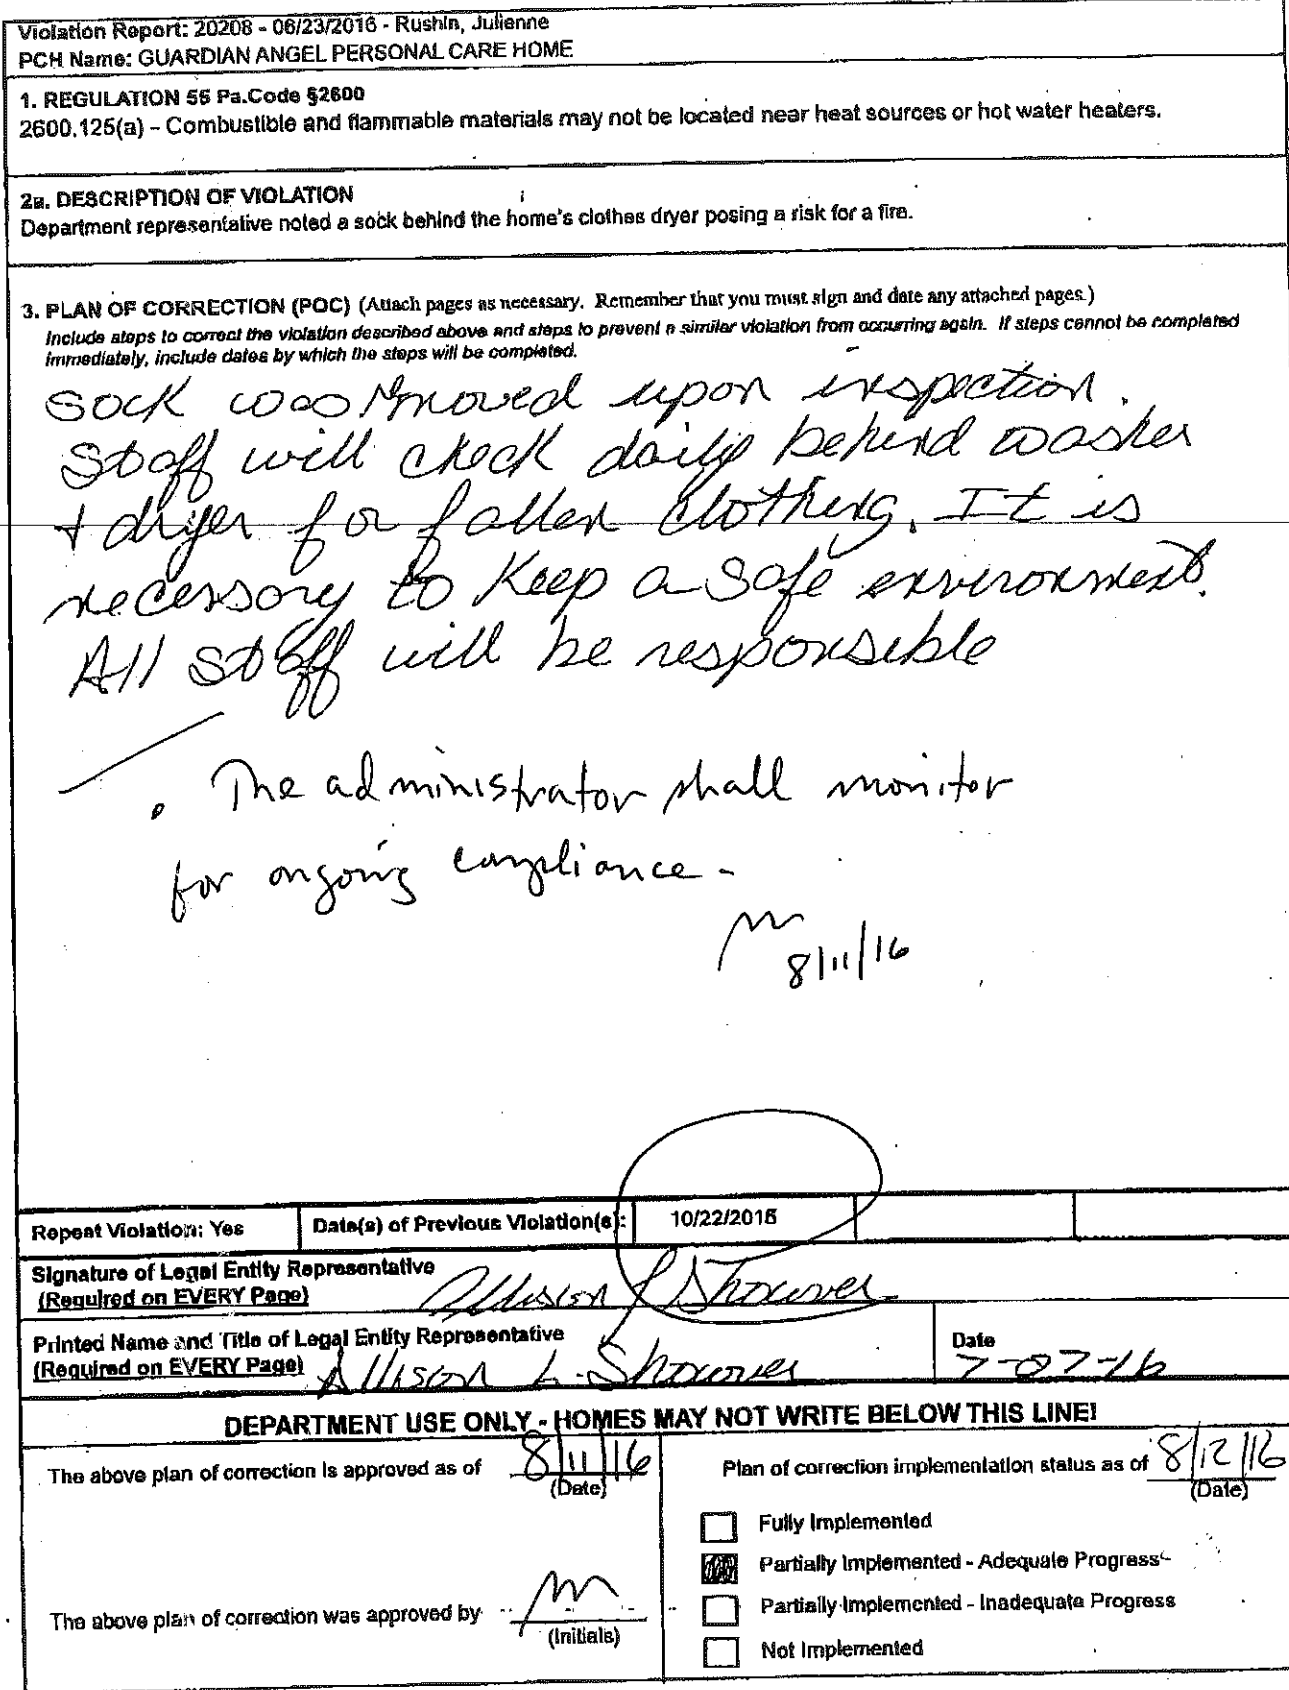 Violation Report: 20208 - 06/23/2016 - Rushin, Julienne
PCH Name: GUARDIAN ANGEL PERSONAL CARE HOME
1. REGULATION 55 Pa.Code §2600
2600.125(a) – Combustible and flammable materials may not be located near heat sources or hot water heaters.
2a. DESCRIPTION OF VIOLATION
Department representative noted a sock behind the home's clothes dryer posing a risk for a fire.
3. PLAN OF CORRECTION (POC) (Attach pages as necessary. Remember that you must sign and date any attached pages.)
Include steps to correct the violation described above and steps to prevent a similar violation from occurring again. If steps cannot be completed
immediately, include dates by which the steps will be completed.
Sock was removed upon inspection.
Staff will check daily behind washer
+ dryer for fallen clothing. It is
necessary to keep a safe environment.
All staff will be responsible
. The administrator shall monitor
for ongoing compliance -
8/11/16
Repeat Violation: Yes
Date(s) of Previous Violation(s):
10/22/2015
Signature of Legal Entity Representative
(Required on EVERY Page) Allison L Showver
Printed Name and Title of Legal Entity Representative
(Required on EVERY Page) Allison L. Showver
Date
7-07-16
DEPARTMENT USE ONLY - HOMES MAY NOT WRITE BELOW THIS LINE!
The above plan of correction is approved as of 8/11/16
(Date)
The above plan of correction was approved by
(Initials)
Plan of correction implementation status as of 8/12/16
(Date)
Fully Implemented
Partially Implemented - Adequate Progress
Partially Implemented - Inadequate Progress
Not Implemented